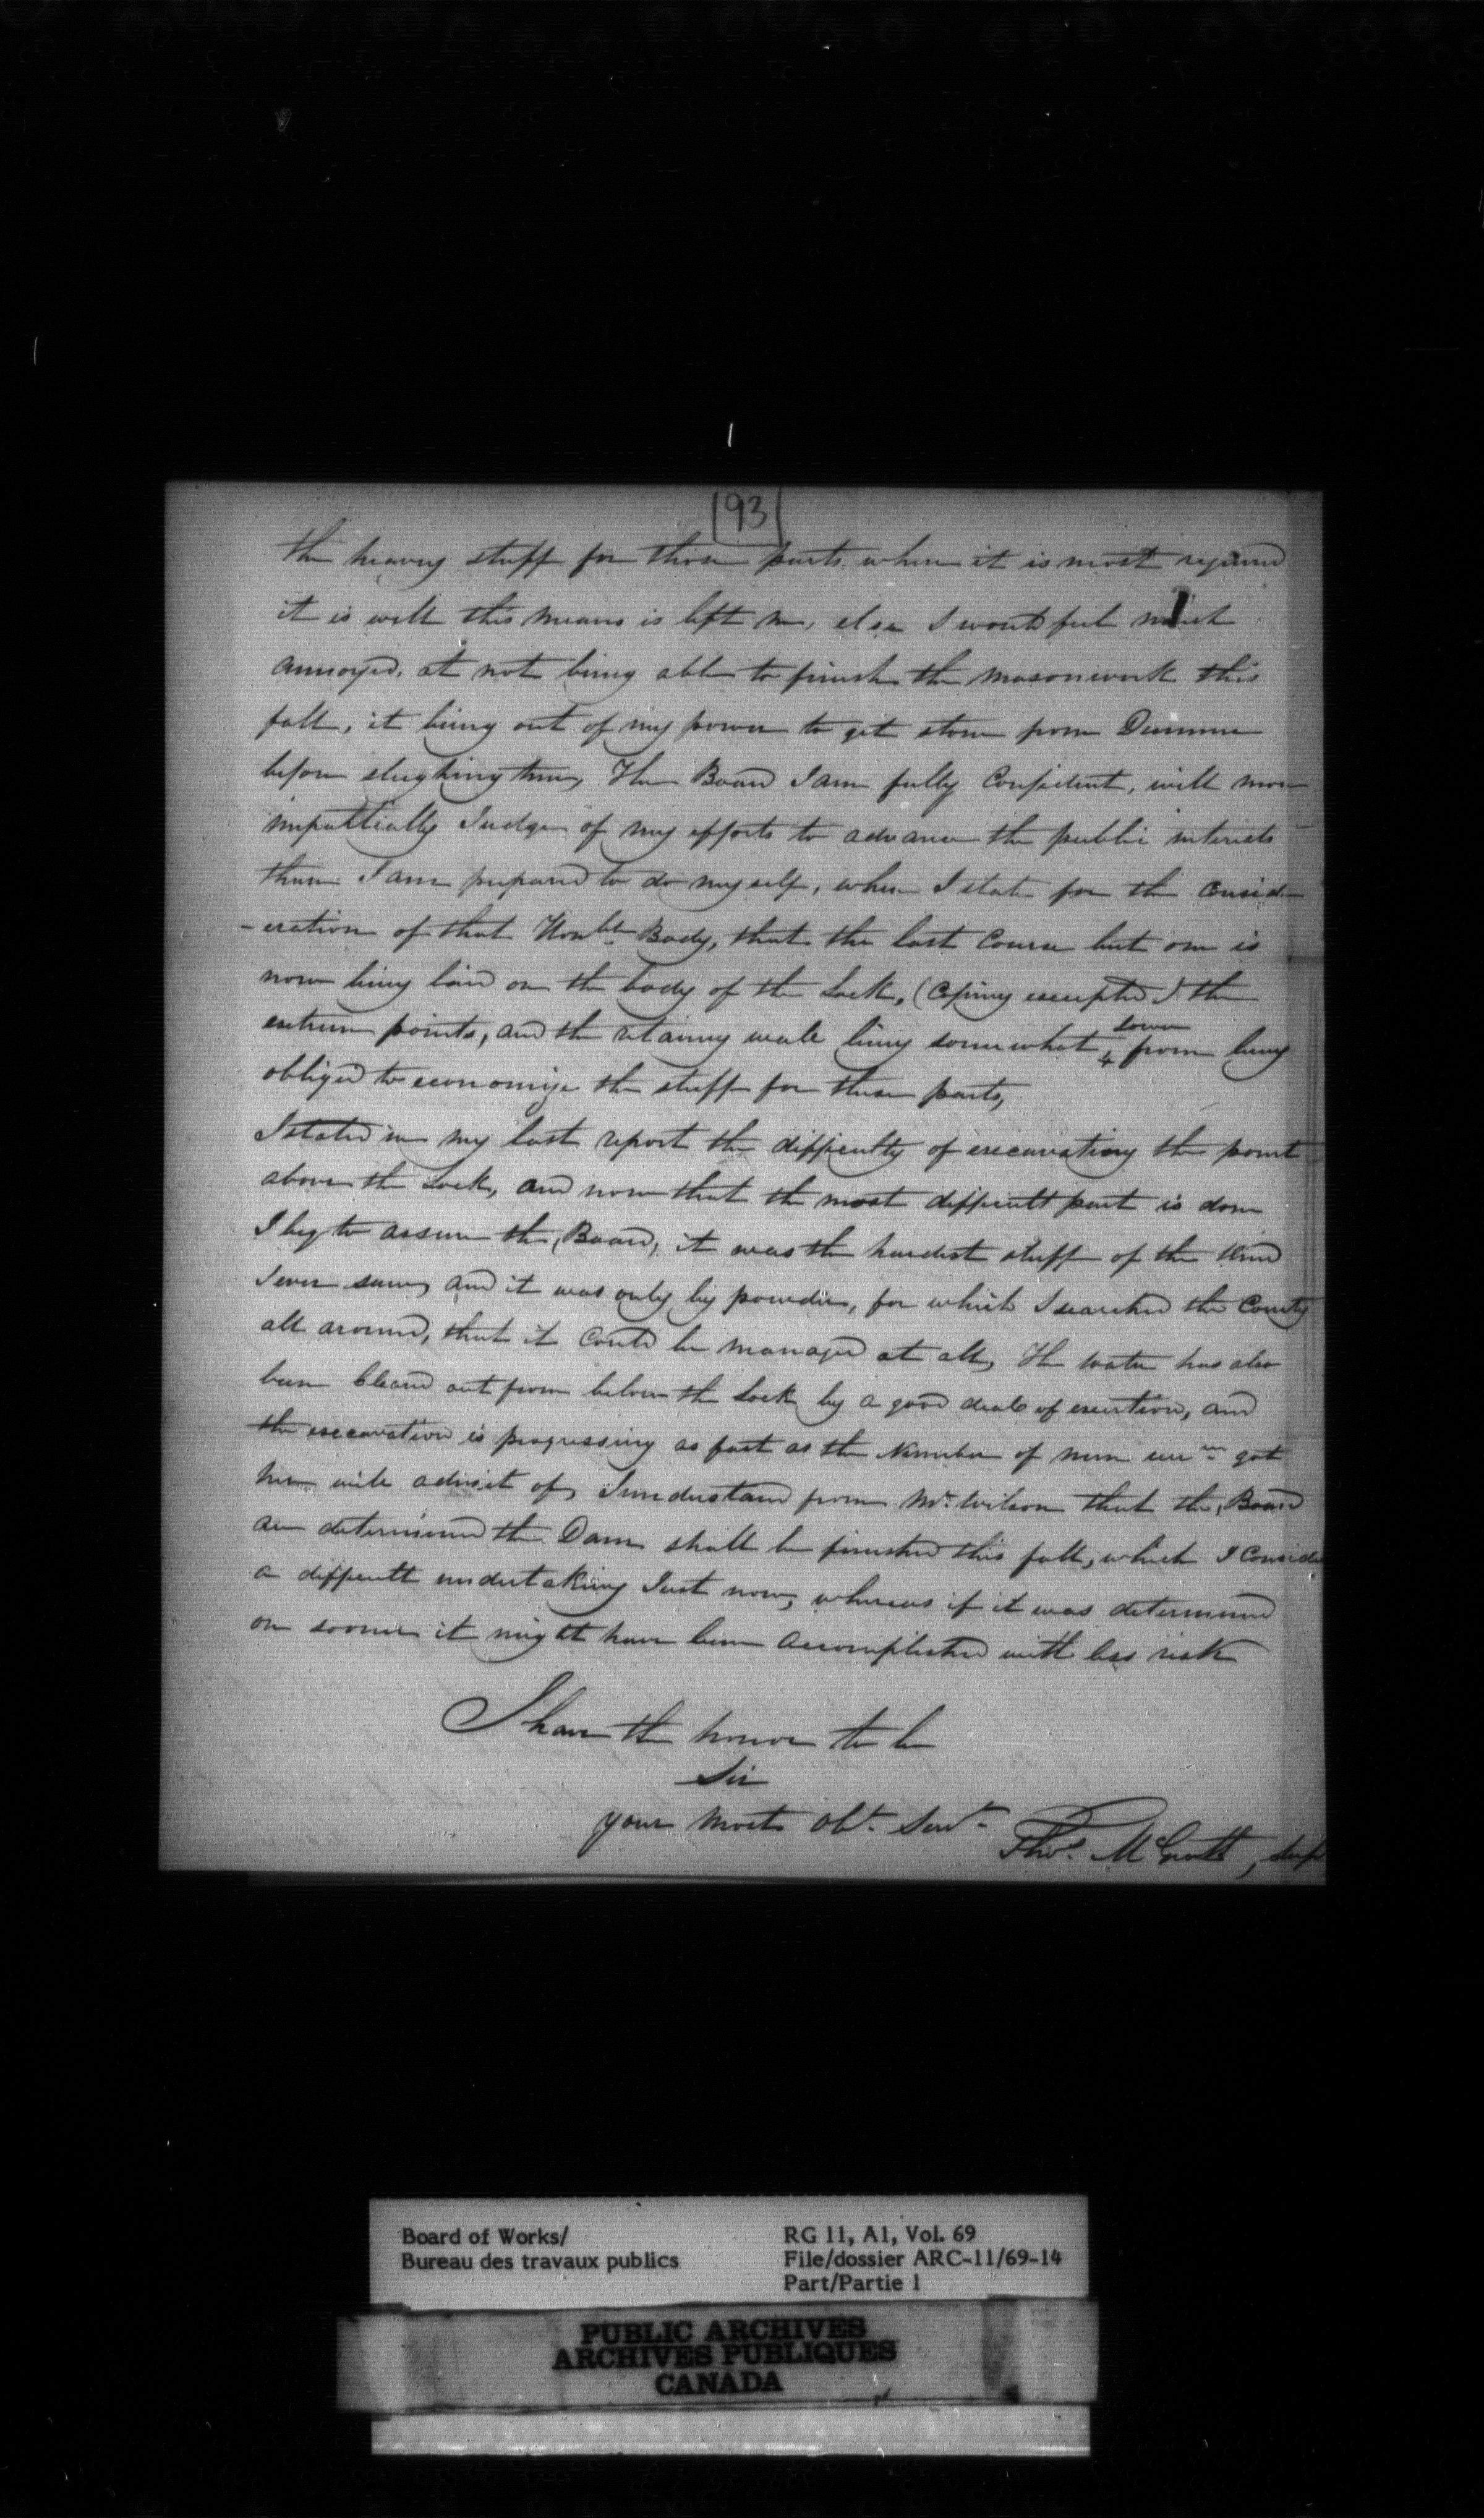 (93)
the heavy stuff for those parts where it is most required
it is well this means is left me, else I would feel much
annoyed, at not being able to finish the masonwork this
fall, it being out of my power to get stone from Dummer
before sleighing time, The Board I am fully Confident, will more
impartially Judge of my efforts to advance the public interests
than I am prepared to do myself, when I state for the Consid
-eration of that Honble Body, that the last Course but one is
now being laid on the body of the Lock, (Coping excepted) the
extreme points, and the retaining walls being somewhat lower from being
obliged to economize the stuff for these parts,
I stated in my last report the difficulty of excavating the point
above the Lock, and now that the most difficult part is done
I beg to assure the Board, it was the hardest stuff of the kind
I ever saw, and it was only by powder, for which I searched the County
all around, that it Could be managed at all, The water has also
been Cleared out from below the Lock by a good deal of exertion, and
the excavation is progressing as fast as the Number of men got
here will admit of, I understand from Mr. Wilson that the Board
are determined the Dam shall be finished this fall, which I Consider
a difficult undertaking Just now, whereas if it was determined
on sooner it might have been accomplished with less risk
I have the honor to be
Sir
your most obt. Servt.
Thos. McGrath, Supt
Board of Works/
Bureau des travaux publics
RG 11, A1, Vol. 69
File/dossier ARC-11/69-14
Part/Partie 1
PUBLIC ARCHIVES
ARCHIVES PUBLIQUES
CANADA